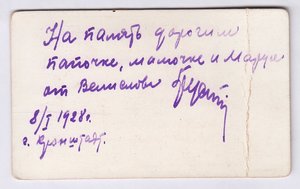 На память дорогим
папочке, мамочке и Марусе
от Велислови
8/I 1928 г.
г. Кронштадт.